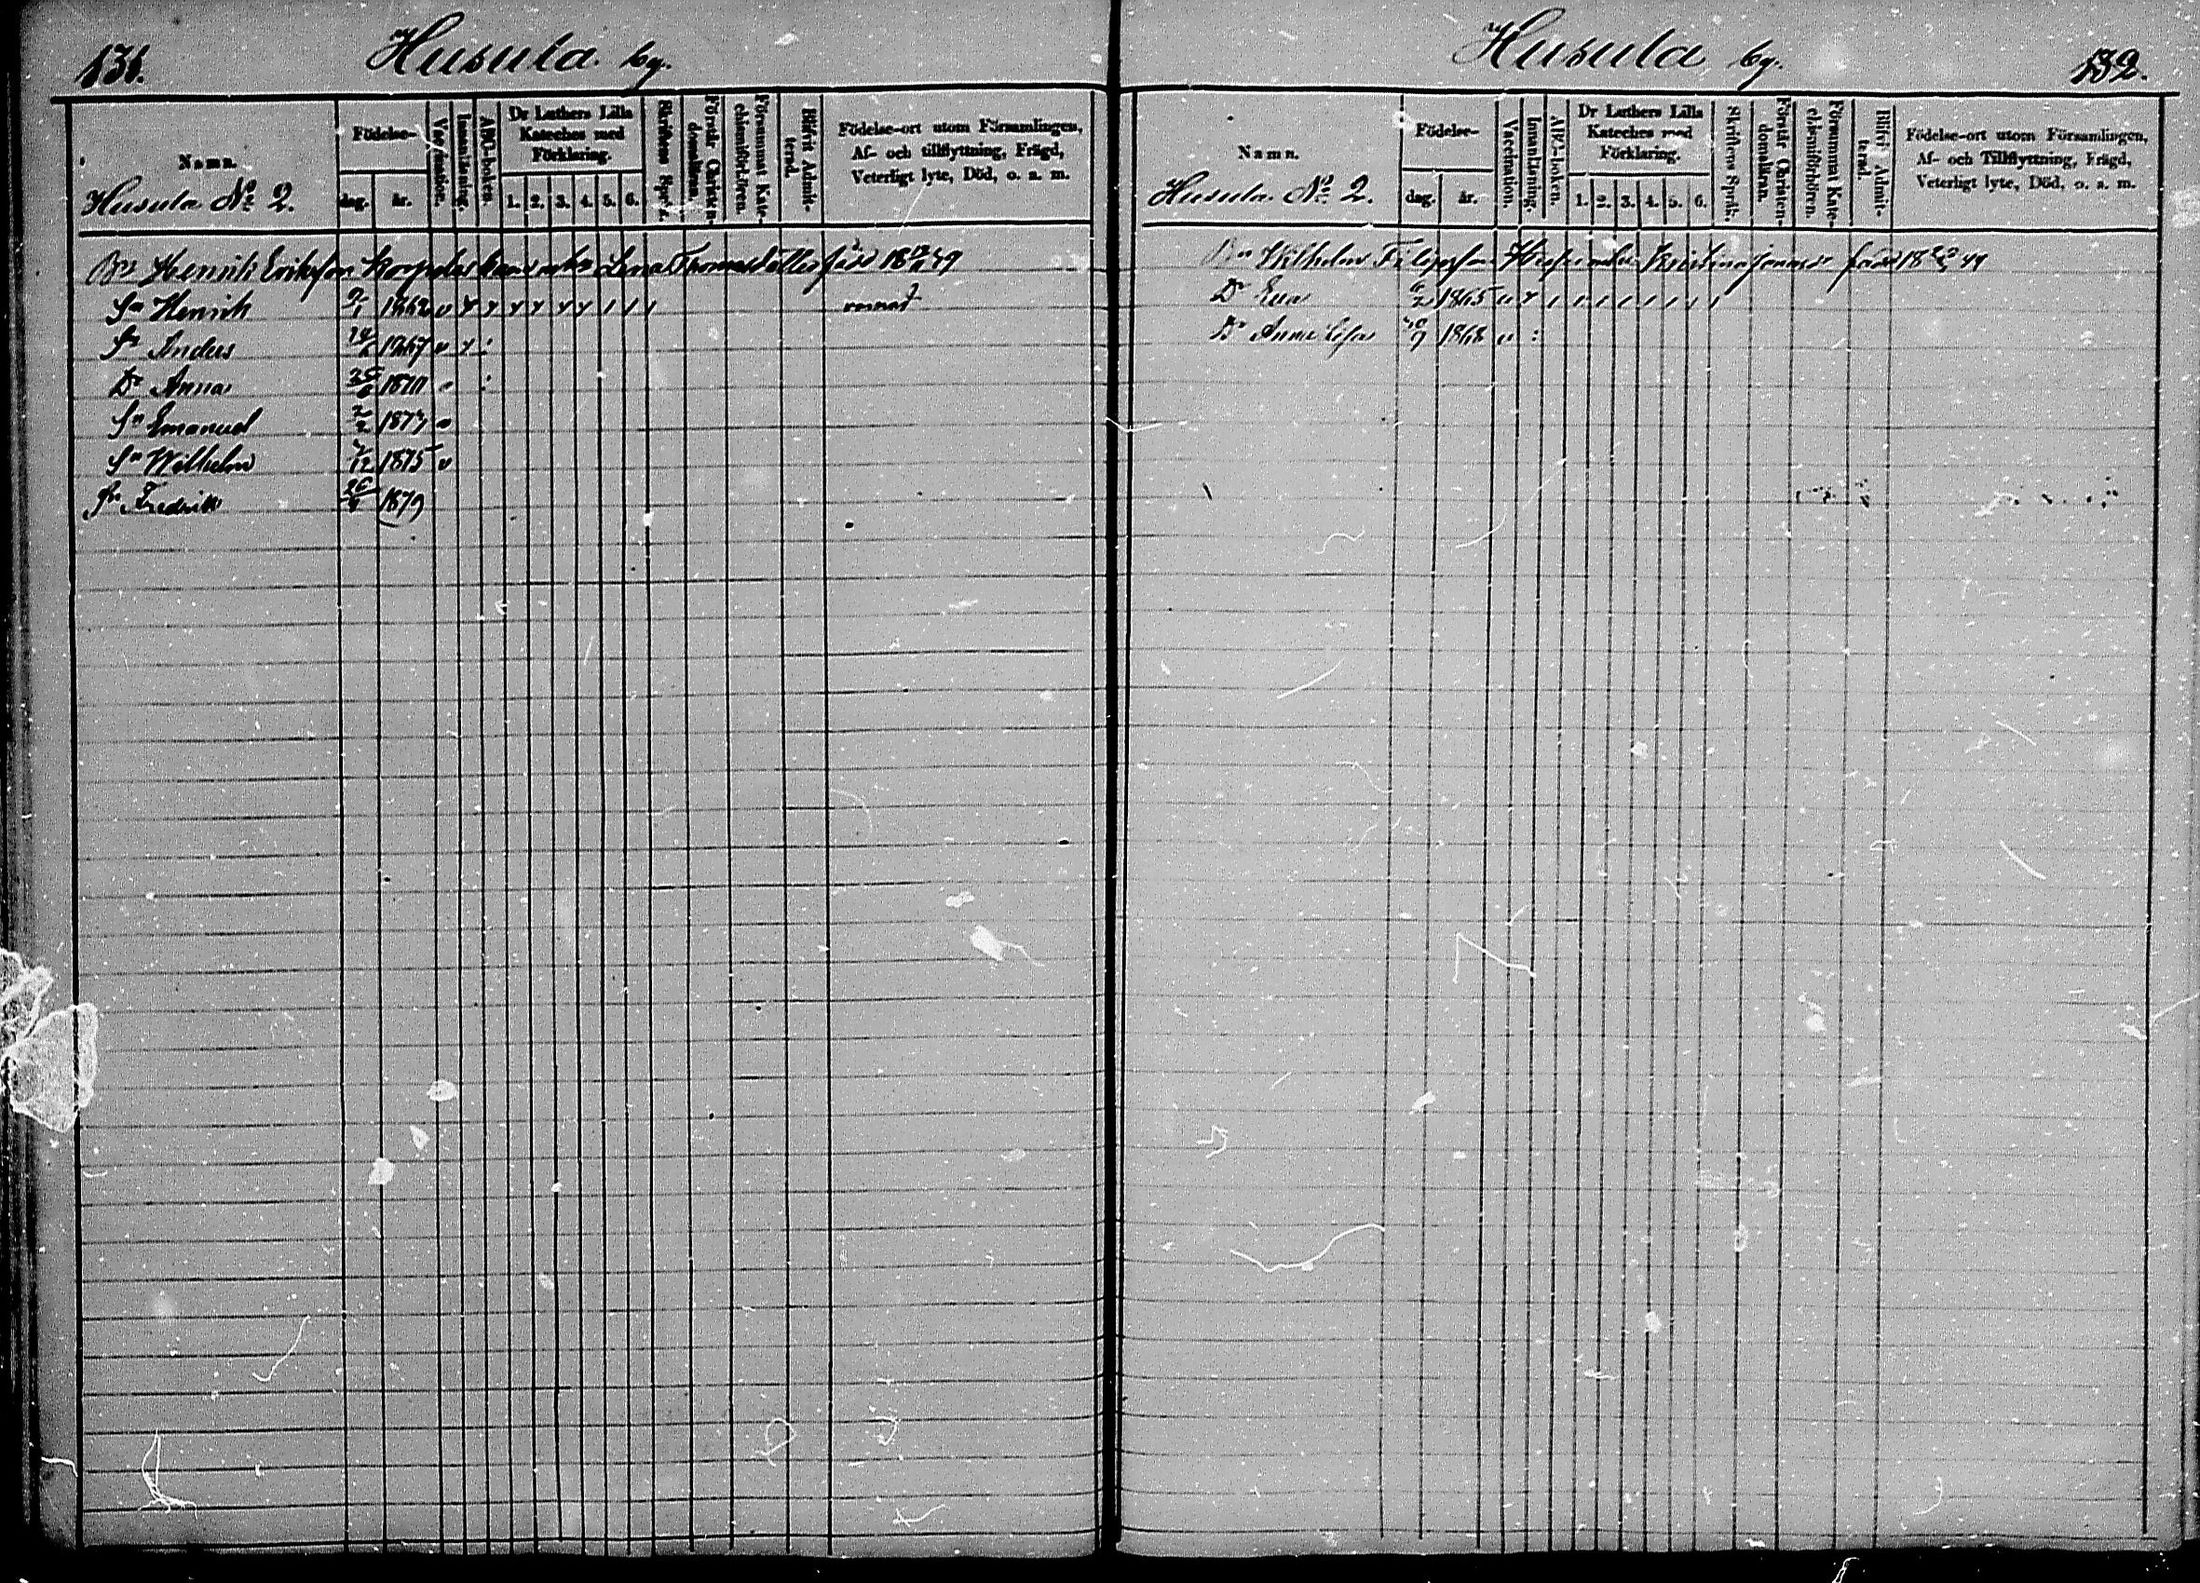 131.
Husula by.
Namn.
Husula No 2.
Födelse-
dag. år.
Vaccination.
Innanläsning.
ABC-boken.
Dr Luthers Lilla
Kateches med
Förklaring.
1. 2. 3. 4. 5. 6.
Skriftens Språk.
Förstår Christen-
domsläran.
Försummat Kate-
chismiförhören.
Blifvit Admit-
terad.
Födelse-ort utom Församlingen,
Af- och tillflyttning, Frägd,
Veterligt lyte, Död, o. a. m.
Henrik Eriksson Lena Thomasdotter
Sn Henrik 1862
Sn Anders 1867
Dr Anna 1870
Sn Emanuel 2/2 1873
Sn Wilhelm 1875
Sn Fredrik 1879
Husula by.
132.
Namn.
Husula No 2.
Födelse-
dag. år.
Vaccination.
Innanläsning.
ABC-boken.
Dr Luthers Lilla
Kateches med
Förklaring.
1. 2. 3. 4. 5. 6.
Skriftens Språk.
Förstår Christen-
domsläran.
Försummat Kate-
chismiförhören.
Blifvit Admit-
terad.
Födelse-ort utom Församlingen,
Af- och Tillflyttning, Frägd,
Veterligt lyte, Död, o. a. m.
Wilhelm Kristina
Dr Eva 6/2 1865
Dr Anna Lisa 1868